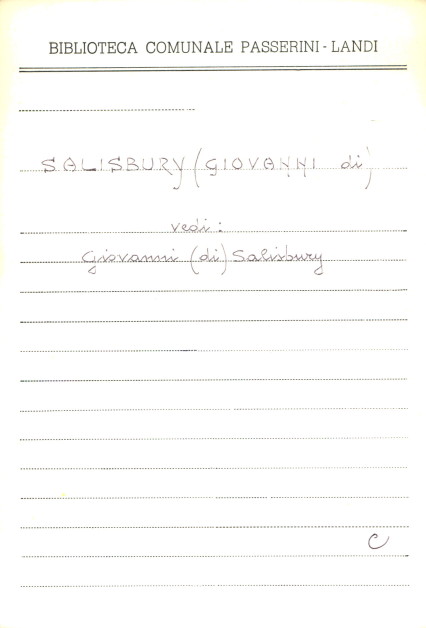 BIBLIOTECA COMUNALE PASSERINI-LANDI
SALISBURY (GIOVANNI di)
vedi:
Giovanni (di) Salisbury
C